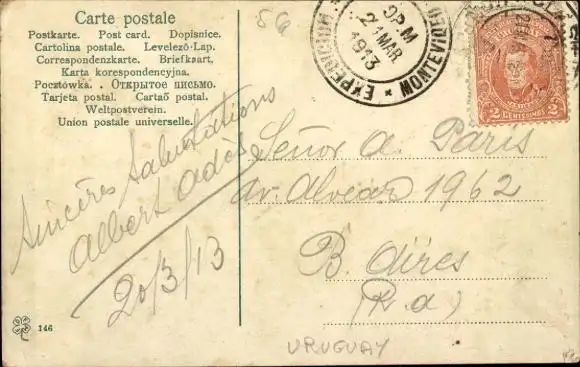 Carte postale
Postkarte. Post card. Dopisnice.
Cartolina postale. Levelező-Lap.
Correspondenzkarte. Briefkaart.
Karta korespondencyjna.
Pocztówka. . Открытое письмо.
Tarjeta postal. Cartaõ postal.
Weltpostverein.
Union postale universelle.
Sincères Salutations
Albert
20/3/13
56
EXPEDICION
MONTEVIDEO
9P.M
MAR
1913
URUGUAY
2 CENTESIMOS 2
Señor A. Paris
av. Alvear 1962
B. Aires
(R. a)
URUGUAY
146